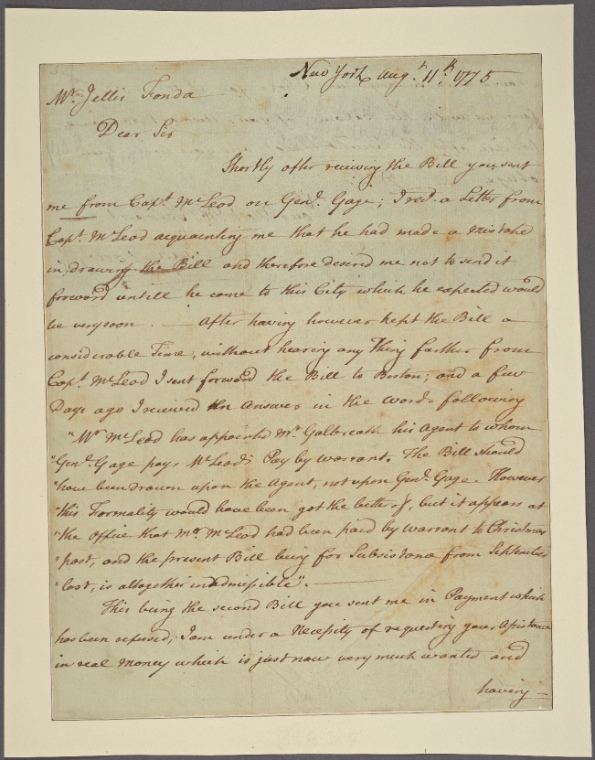 New York Augt. 11th. 1775
Mr. Jellis Fonda
Dear Sir
Shortly after receiving the Bill you sent
me from Capt. McLeod on Genl. Gage; I recd. a Letter from
Capt. McLeod acquainting me that he had made a mistake
in drawing the Bill and therefore desired me not to send it
forword untill he come to this City which he expected would
be very soon. After having however kept the Bill a
considerable Time, without hearing any Thing farther from
Capt. McLeod I sent forword the Bill to Boston; and a few
Days ago I received the Answer in the Words following
"Mr. McLeod has appointd Mr. Galbreath his Agent to whom
"Genl. Gage pays McLeods Pay by warrant. The Bill should
"have been drawn upon the Agent, not upon Genl. Gage. However
"this Formality would have been got the better of, but it appears at
"the Office that Mr. McLeod had been paid by Warrant to Christmas
"past, and the present Bill being for Subsistance from September
"last, is altogether inadmissible".
This being the second Bill you sent me in Payment which
has been refused, I am under a Necessity of requesting your Assistance
in real Money which is just now very much wanted and
having